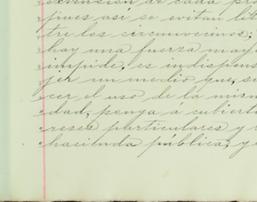 extensión de cada pro
pues así se evitan liti
tre los circunvecinos;
hay una fuerza mayo
impide, es indispens
jir un medio que, s
cer el uso de la mism
dad, ponga á cubierto
reses particulares y
hacienda pública, y